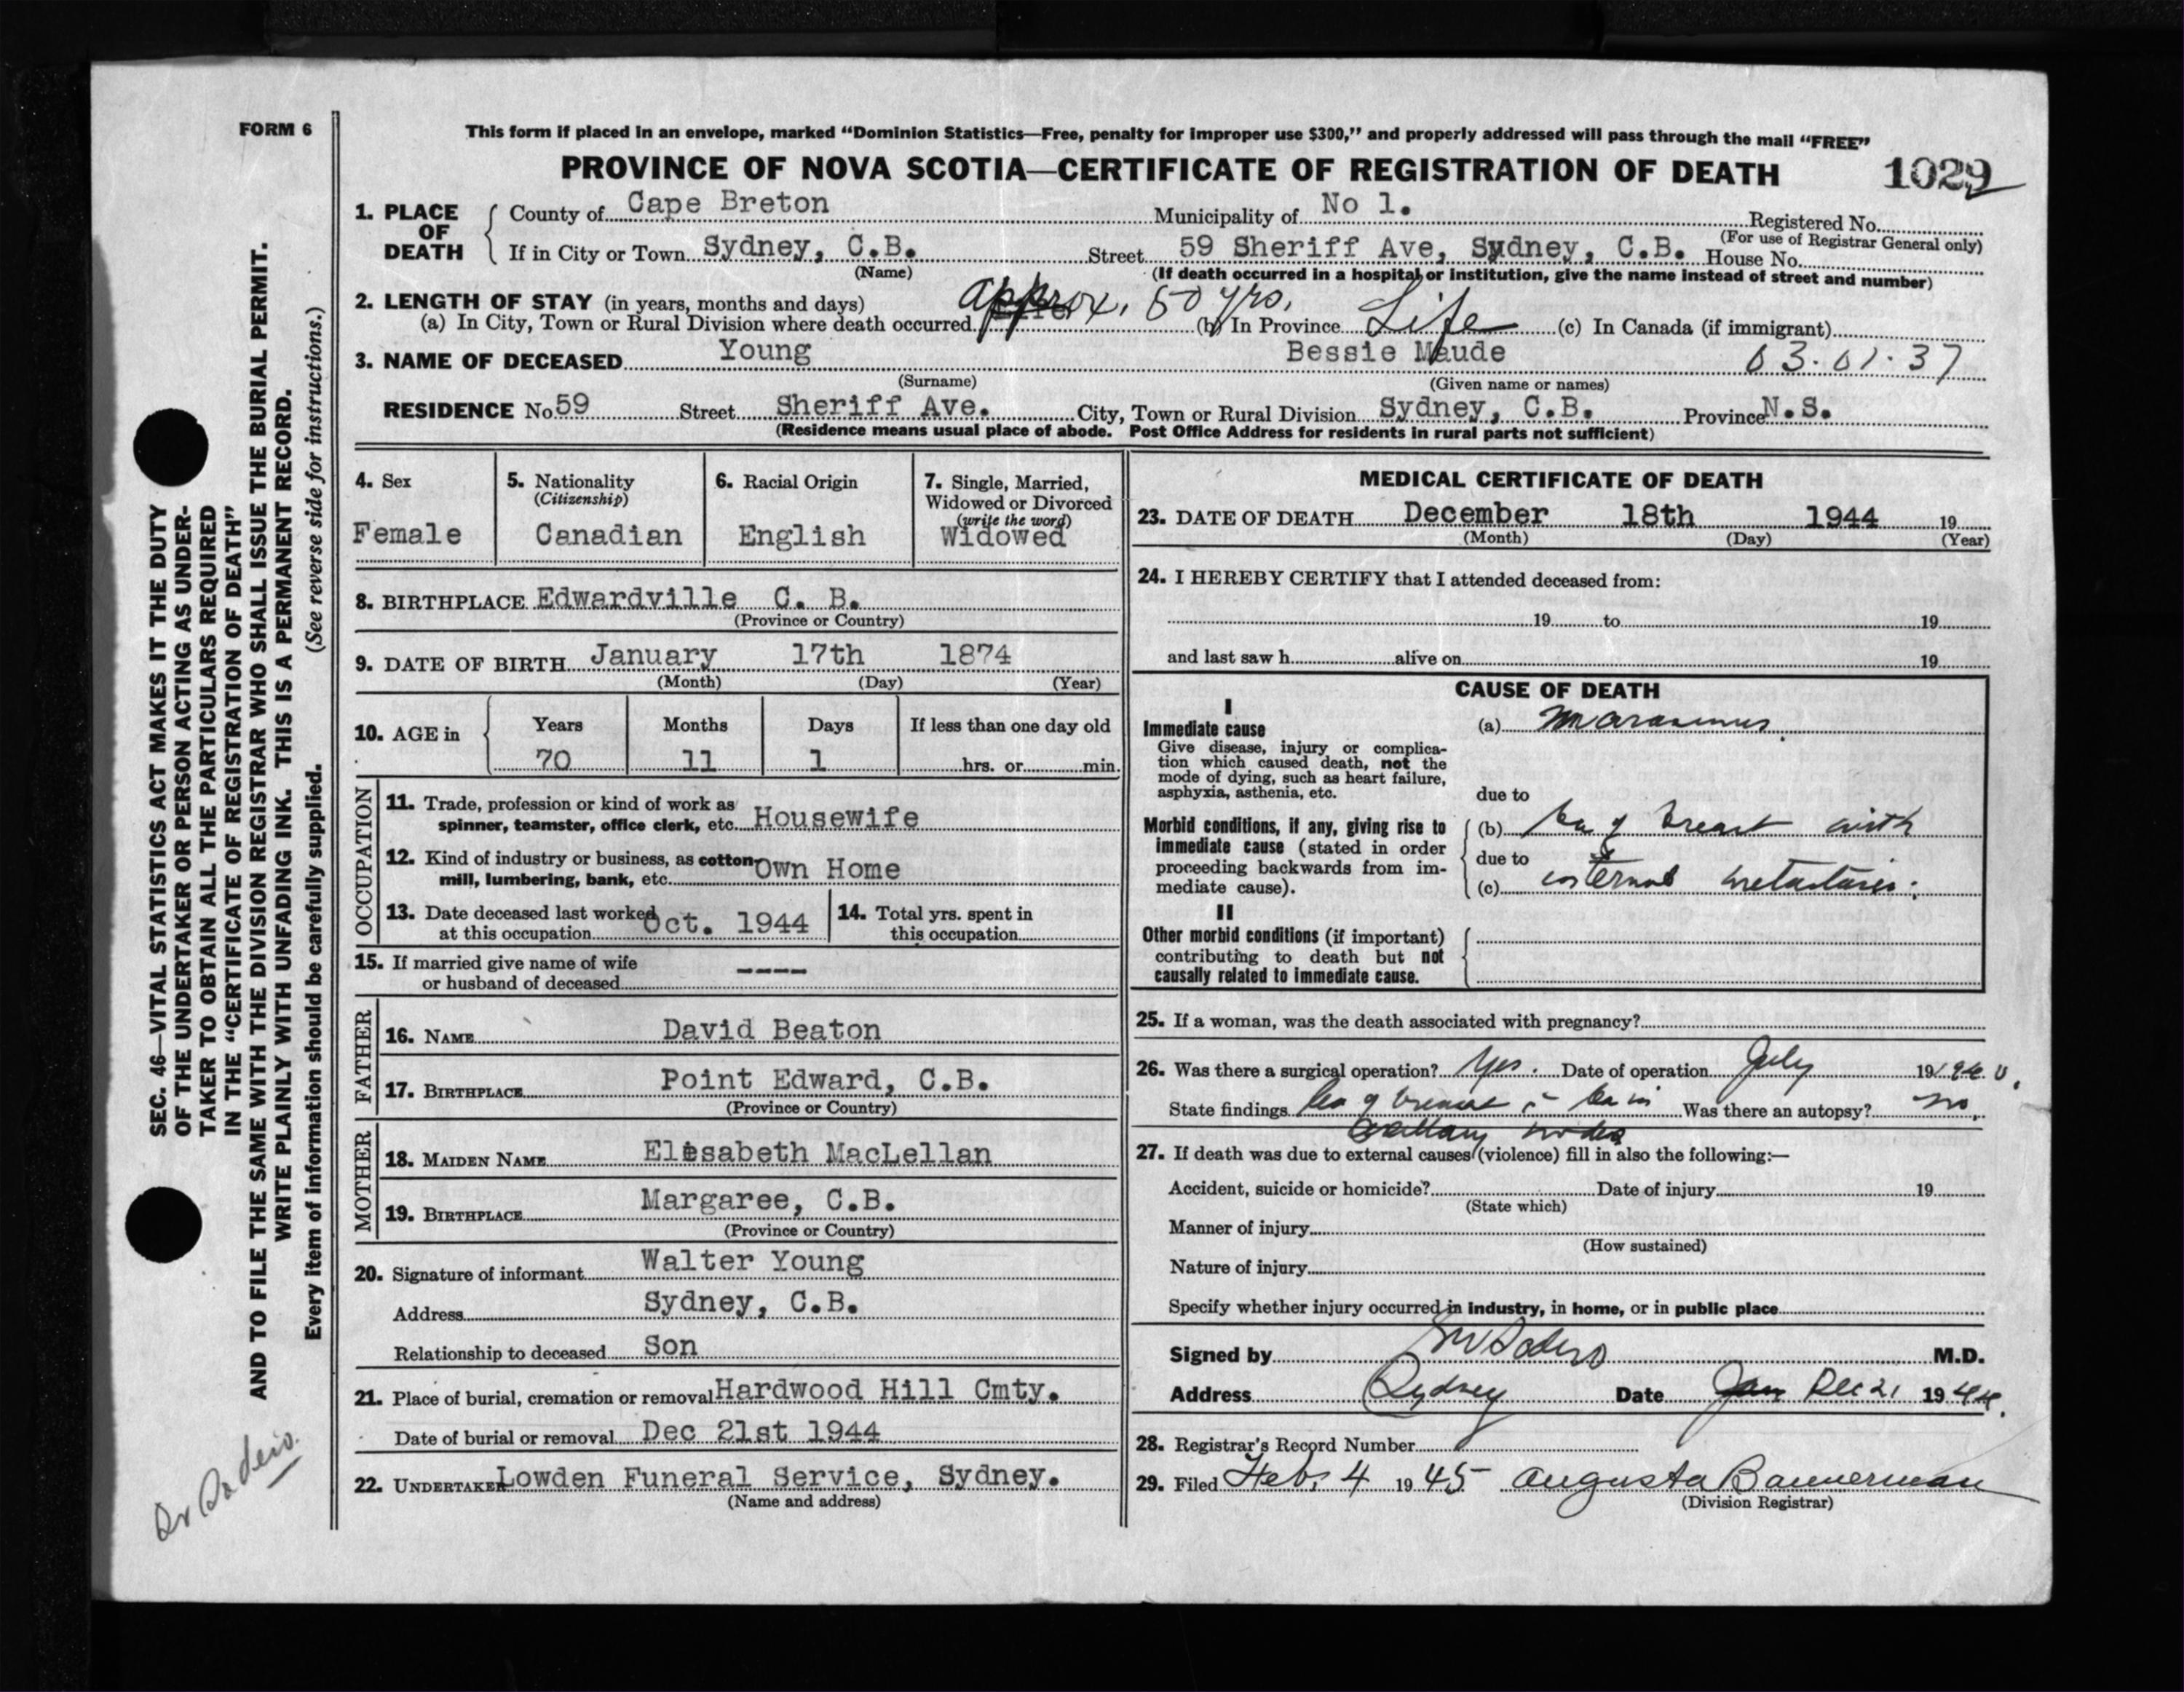 FORM 6
This form if placed in an envelope, marked “Dominion Statistics—Free, penalty for improper use $300,” and properly addressed will pass through the mail “FREE”
PROVINCE OF NOVA SCOTIA—CERTIFICATE OF REGISTRATION OF DEATH 1029
1. PLACE OF DEATH
County of Cape Breton Municipality of No 1. Registered No.
(For use of Registrar General only)
If in City or Town Sydney, C.B. Street 59 Sheriff Ave, Sydney, C.B. House No.
(Name) (If death occurred in a hospital or institution, give the name instead of street and number)
2. LENGTH OF STAY (in years, months and days)
(a) In City, Town or Rural Division where death occurred approx. 50 yrs. (b) In Province Life (c) In Canada (if immigrant)
3. NAME OF DECEASED Young Bessie Maude 03.01.37
(Surname) (Given name or names)
RESIDENCE No 59 Street Sheriff Ave. City, Town or Rural Division Sydney, C.B. Province N.S.
(Residence means usual place of abode. Post Office Address for residents in rural parts not sufficient)
4. Sex
Female
5. Nationality
(Citizenship)
Canadian
6. Racial Origin
English
7. Single, Married,
Widowed or Divorced
(write the word)
Widowed
8. BIRTHPLACE Edwardville C. B.
(Province or Country)
9. DATE OF BIRTH January 17th 1874
(Month) (Day) (Year)
10. AGE in Years Months Days If less than one day old
70 11 1 hrs. or min.
OCCUPATION
11. Trade, profession or kind of work as
spinner, teamster, office clerk, etc. Housewife
12. Kind of industry or business, as cotton-
mill, lumbering, bank, etc. Own Home
13. Date deceased last worked
at this occupation Oct. 1944
14. Total yrs. spent in
this occupation
15. If married give name of wife
or husband of deceased ----
FATHER
16. NAME David Beaton
17. BIRTHPLACE Point Edward, C.B.
(Province or Country)
MOTHER
18. MAIDEN NAME Elisabeth MacLellan
19. BIRTHPLACE Margaree, C.B.
(Province or Country)
20. Signature of informant Walter Young
Address Sydney, C.B.
Relationship to deceased Son
21. Place of burial, cremation or removal Hardwood Hill Cmty.
Date of burial or removal Dec 21st 1944
22. UNDERTAKER Lowden Funeral Service, Sydney.
(Name and address)
MEDICAL CERTIFICATE OF DEATH
23. DATE OF DEATH December 18th 1944 19
(Month) (Day) (Year)
24. I HEREBY CERTIFY that I attended deceased from:
19 to 19
and last saw h alive on 19
CAUSE OF DEATH
I
Immediate cause
Give disease, injury or complica-
tion which caused death, not the
mode of dying, such as heart failure,
asphyxia, asthenia, etc.
(a) Marasmus.
due to
Morbid conditions, if any, giving rise to
immediate cause (stated in order
proceeding backwards from im-
mediate cause).
(b) Ca of breast with
due to
(c) internal metastasis.
II
Other morbid conditions (if important)
contributing to death but not
causally related to immediate cause.
25. If a woman, was the death associated with pregnancy?
26. Was there a surgical operation? Yes. Date of operation July 19
State findings Ca of breast c̄ Ca in Was there an autopsy? no.
axillary nodes
27. If death was due to external causes (violence) fill in also the following:—
Accident, suicide or homicide? Date of injury 19
(State which)
Manner of injury
(How sustained)
Nature of injury
Specify whether injury occurred in industry, in home, or in public place
Signed by M.D.
Address Sydney Date Jan Dec 21 1944.
28. Registrar's Record Number
29. Filed Feb. 4 1945 Augusta Bannerman
(Division Registrar)
SEC. 46—VITAL STATISTICS ACT MAKES IT THE DUTY
OF THE UNDERTAKER OR PERSON ACTING AS UNDER-
TAKER TO OBTAIN ALL THE PARTICULARS REQUIRED
IN THE “CERTIFICATE OF REGISTRATION OF DEATH”
AND TO FILE THE SAME WITH THE DIVISION REGISTRAR WHO SHALL ISSUE THE BURIAL PERMIT.
WRITE PLAINLY WITH UNFADING INK. THIS IS A PERMANENT RECORD.
Every item of information should be carefully supplied. (See reverse side for instructions.)
Dr Sodero.